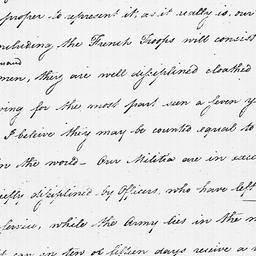 proper to represent it, as it really is, our
including the French Troops will consist
men, they are well disciplined cloathed
ving for the most part seen a seven y
I beleive they may be counted equal to
in the world - Our Militia are in exce
iefly disciplined by Officers, who have left
service, while the Army lies in the m
it can in ten or fifteen days receive a